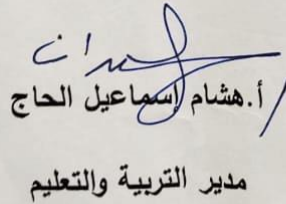 أ.هشام إسماعيل الحاج
مدير التربية والتعليم